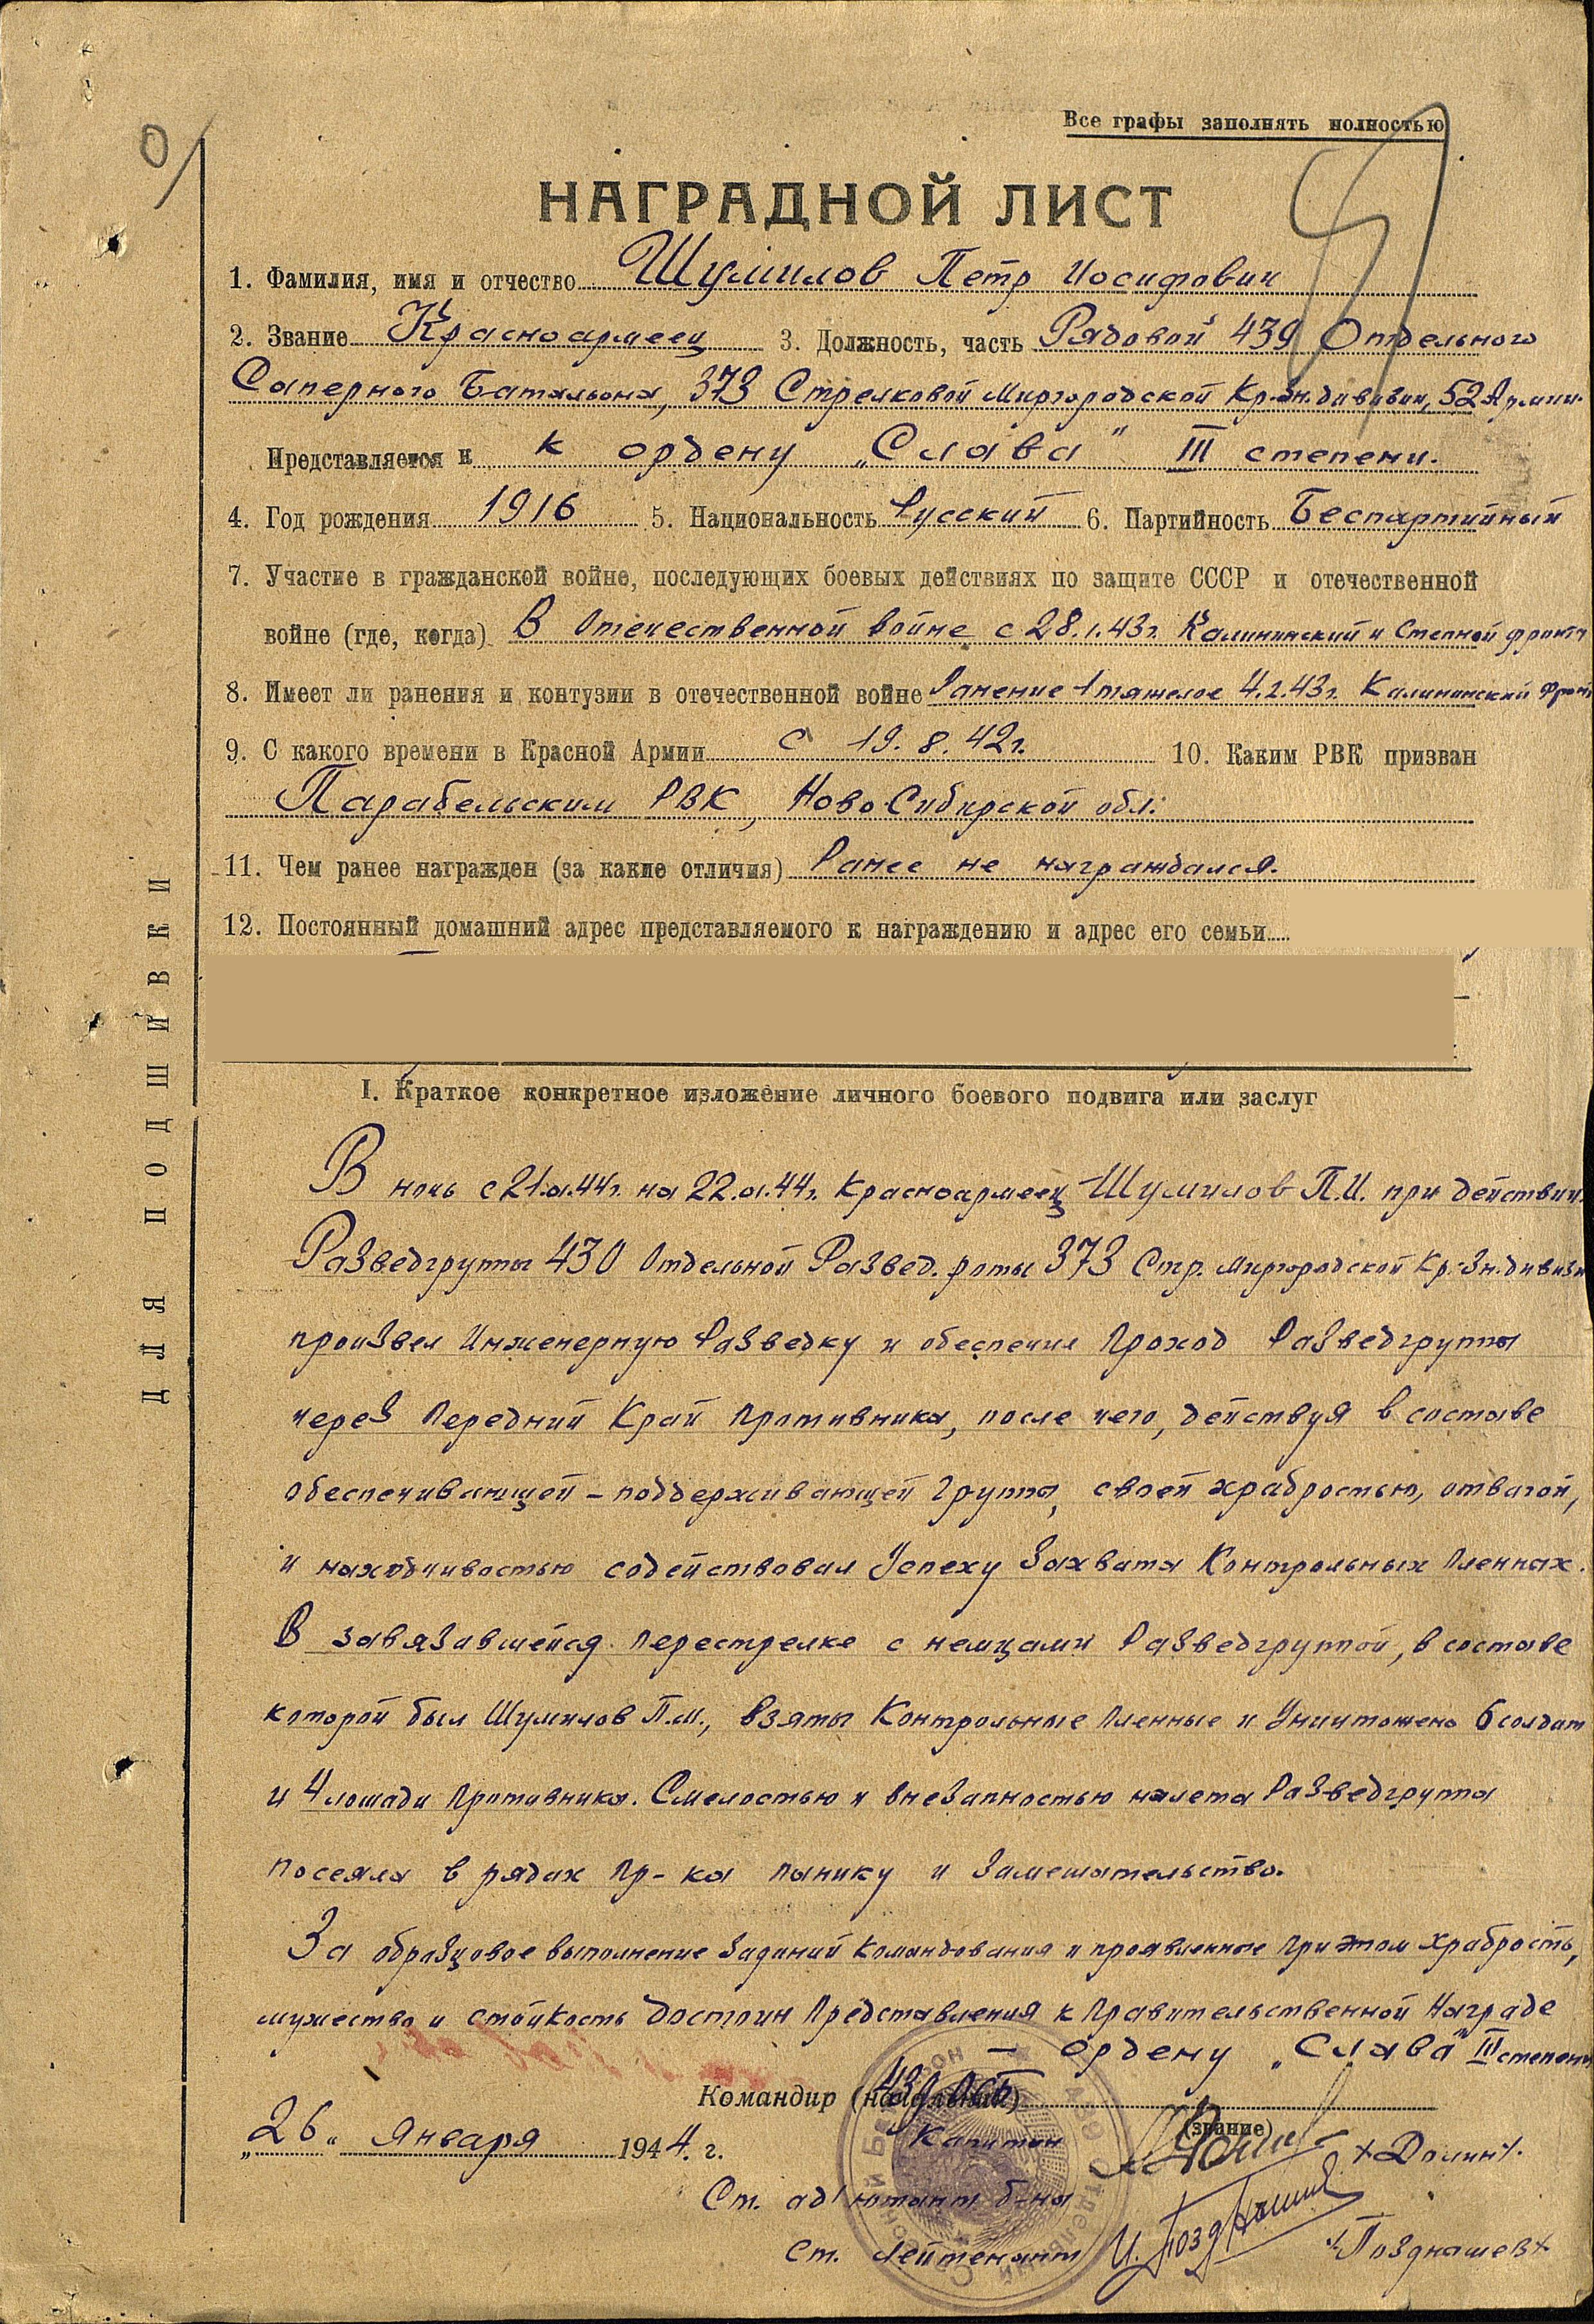 Все графы заполнять полностью
НАГРАДНОЙ ЛИСТ
1. Фамилия, имя и отчество Шумилов Петр Иосифович
2. Звание Красноармеец 3. Должность, часть Рядовой 439 Отдельного
Саперного Батальона, 373 Стрелковой Миргородской Кр.Зн. дивизии, 52 Армии.
Представляется к к ордену „Слава" III степени.
4. Год рождения 1916 5. Национальность Русский 6. Партийность Беспартийный
7. Участие в гражданской войне, последующих боевых действиях по защите СССР и отечественной
войне (где, когда) В Отечественной войне с 28.1.43г. Калининский и Степной фронты
8. Имеет ли ранения и контузии в отечественной войне Ранение 1 тяжелое 4.2.43г. Калининский Фронт
9. С какого времени в Красной Армии С 19.8.42г. 10. Каким РВК призван
Парабельским РВК, Ново Сибирской обл.
11. Чем ранее награжден (за какие отличия) Ранее не награждался.
12. Постоянный домашний адрес представляемого к награждению и адрес его семьи
I. Краткое конкретное изложение личного боевого подвига или заслуг
В ночь с 21.01.44г. на 22.01.44г. Красноармеец Шумилов П.И. при действии
Разведгруппы 430 Отдельной Развед. роты 373 Стр. Миргородской Кр.-Зн. дивизии
произвел Инженерную Разведку и обеспечил Проход Разведгруппы
через Передний Край Противника, после чего, действуя в составе
обеспечивающей – поддерживающей Группы, своей храбростью, отвагой,
и находчивостью содействовал Успеху Захвата Контрольных Пленных.
В завязавшейся перестрелке с немцами Разведгруппой, в составе
которой был Шумилов П.И., Взяты Контрольные Пленные и Уничтожено 6 солдат
и 4 лошади Противника. Смелостью и внезапностью налета Разведгруппа
посеяла в рядах Пр-ка панику и Замешательство.
За образцовое выполнение Заданий Командования и проявленные При этом Храбрость,
мужество и стойкость Достоин Представления к Правительственной Награде
– ордену „Слава" III степени
Командир (начальник) 439 ОСБ
(звание)
„26" Января 1944 г. Капитан /Долин/.
Ст. ад'ютант б-на
Ст. Лейтенант И. Позднашев /Позднашев/
ДЛЯ ПОДШИВКИ